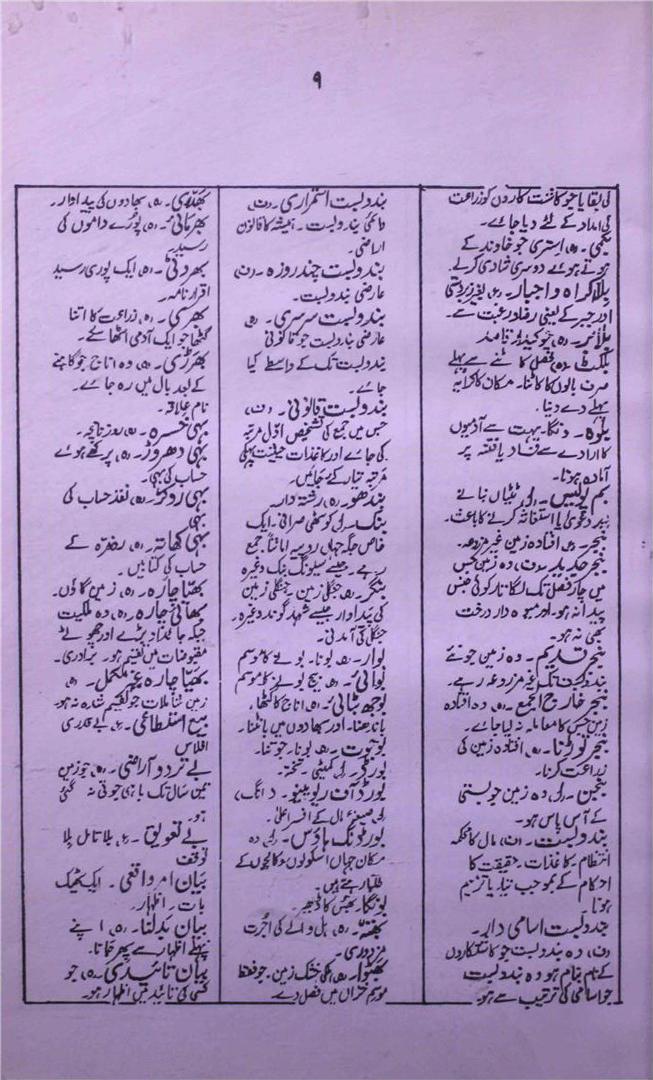 ۹
کی بقایا جو کاشت کاروں کو زراعت
کی امداد کے لئے دیا جائے۔
استری جو خاوند کے
ہوتے ہوئے دوسری شادی کرلے۔
بلا اکراہ و اجبار۔ بغیر زبردستی
اور جبر کے یعنی رضا و رغبت سے۔
فصل کاٹنے سے پہلے
صرف بالوں کا کاٹنا۔ مکان کا کرایہ
پہلے دے دینا۔
بلوہ۔ دنگا۔ بہت سے آدمیوں
کا ارادے سے فساد یا فتنہ پر
آمادہ ہونا۔
بنجر۔ افتادہ زمین غیر مزروعہ۔
بنجر جدید۔ وہ زمین جس
میں چار فصل تک لگاتار کوئی جنس
پیدا نہ ہو۔ اور میوہ دار درخت
بھی نہ ہو۔
بنجر قدیم۔ وہ زمین جو نئے
بندوبست تک غیر مزروعہ رہے۔
بنجر خارج الجمع۔ وہ افتادہ
زمین جس کا معاملہ نہ لیا جائے۔
بنجر توڑنا۔ افتادہ زمین کی
زراعت کرنا۔
وہ زمین جو بستی
کے آس پاس ہو۔
بندوبست۔ (ف) مال کا محکمہ
انتظام۔ کاغذات حقیقت کا
احکام کے بموجب تیار یا ترمیم
ہونا۔
بندوبست اسامی وار۔
(ف) وہ بندوبست جو کاشتکاروں
کے نام بنام ہو وہ بندوبست
جو اسامی کی ترتیب سے ہو۔
بندوبست استمراری۔ (ف)
دائمی بندوبست۔ ہمیشہ کا قانون
اراضی۔
بندوبست چند روزہ۔ (ف)
عارضی بندوبست۔
بندوبست سرسری۔
عارضی بندوبست جو قانونی
بندوبست تک کے واسطے کیا
جائے۔
بندوبست قانونی۔ (ف)
جس میں جمع کی تشخیص اول مرتبہ
کی جائے اور کاغذات
مرتبہ تیار کئے جائیں۔
بندھو۔ (ہ) رشتہ دار۔
بنک۔ کوٹھی صرافی۔ ایک
خاص جگہ جہاں روپیہ امانتاً جمع
رہے۔ جیسے سیونگ بنک وغیرہ
بنکر۔ جنگل زمین۔ جنگلی زمین
کی پیداوار جیسے شہد گوند وغیرہ۔
جنگل کی آمدنی۔
بوار۔ بونا۔ بونے کا موسم
بوائی۔ بیج بونے کا موسم
بوجھ بٹائی۔ (ہ) اناج کا گٹھا،
باندھنا۔ اور سبھادوں میں بانٹنا۔
بونا۔ جوتنا۔
بورڈ۔ کمیٹی۔ تختہ۔
بورڈ آف ریونیو۔
صیغہ مال کے افسر اعلیٰ۔
بورڈنگ ہاؤس۔ وہ
مکان جہاں اسکولوں و کالجوں کے
طلبا رہتے ہیں۔
بونگا۔ بھس کا ڈھیر۔
(ہ) ہل والے کی اجرت
مزدوری۔
خشک زمین۔ جو فقط
موسم خزاں میں فصل دے۔
بھدئی۔ (ہ) بھادوں کی پیداوار۔
بھرپائی۔ (ہ) پورے داموں کی
رسید۔
بھروتی۔ (ہ) ایک پوری رسید
اقرار نامہ۔
بھری۔ (ہ) زراعت کا اتنا
گٹھا جو ایک آدمی اٹھا سکے۔
وہ اناج جو گاہنے
کے بعد بال میں رہ جائے۔
نام علاقہ۔
بہی خسرہ۔ (ہ) روزنامچہ۔
بہی دھروڑ۔ (ہ) پرکھے ہوئے
حساب کی بہی۔
بہی روکڑ۔ (ہ) نقد حساب کی
بہی۔
بہی کھاتہ۔ (ہ) روزمرہ کے
حساب کی کتابیں۔
زمین گاؤں۔
بھائی چارہ۔ (ہ) وہ ملکیت
جبکہ جائداد بڑے اور چھوٹے
مقبوضات میں تقسیم ہو۔ برادری۔
بھیا چارہ غیر مکمل۔ (ہ)
زمین شاملات جو تقسیم شدہ نہ ہو۔
افلاس
بے تردد آراضی۔ (ہ) جو زمین
تین سال تک باہی جوتی نہ گئی
ہو۔
بے تعویق۔ بلا تامل بلا
توقف
بیان امر واقعی۔ ایک ٹھیک
بات۔ اظہار۔
بیان بدلنا۔ (ہ) اپنے
پہلے اظہار سے پھر جانا۔
بیان تائیدی۔ (ہ) جو
کسی کی تائید میں اظہار ہو۔